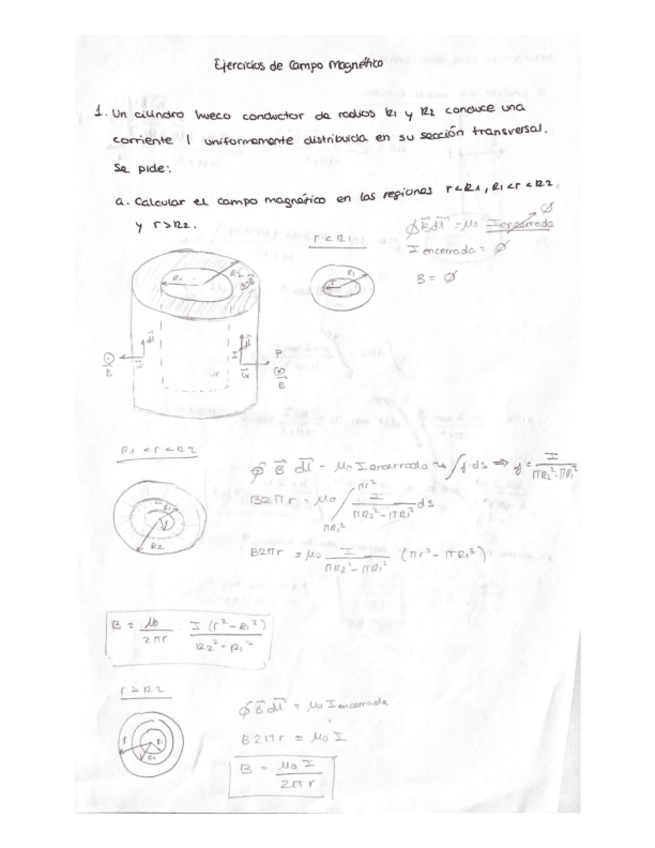 Ejercicios de Campo Magnético
1. Un cilindro hueco conductor de radios R1 y R2 conduce una
corriente I uniformemente distribuida en su sección transversal.
Se pide:
a. Calcular el campo magnético en las regiones r<R1, R1<r<R2,
y r>R2.
r<R1
∮B⃗ dl⃗ = μ₀ I encerrada ∅
I encerrada = ∅
B = ∅
R1
R2
R1
P
B
B
R1<r<R2
∮ B⃗ dl⃗ = μ₀ I encerrada ⇝ ∫j·ds ⇒ j = I / (πR2² - πR1²)
B2πr = μ₀ ∫_{πR1²}^{πr²} I / (πR2² - πR1²) ds
B2πr = μ₀ I / (πR2² - πR1²) (πr² - πR1²)
R1
r
R2
B = μ₀ / 2πr · I (r² - R1²) / (R2² - R1²)
r>R2
∮B⃗ dl⃗ = μ₀ I encerrada
B2πr = μ₀ I
B = μ₀ I / 2πr
r
R1
R2